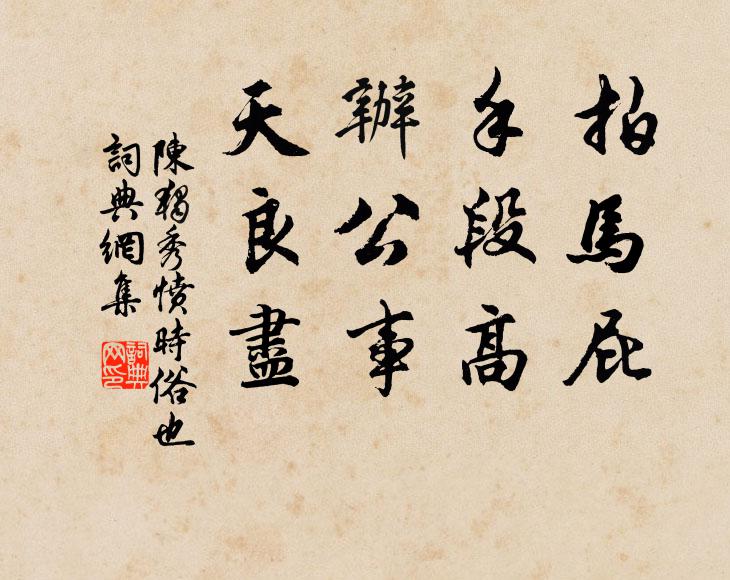 拍馬屁
手段高
辦公事
天良盡
陳獨秀憤時俗也
詞典網集
詞典
网印